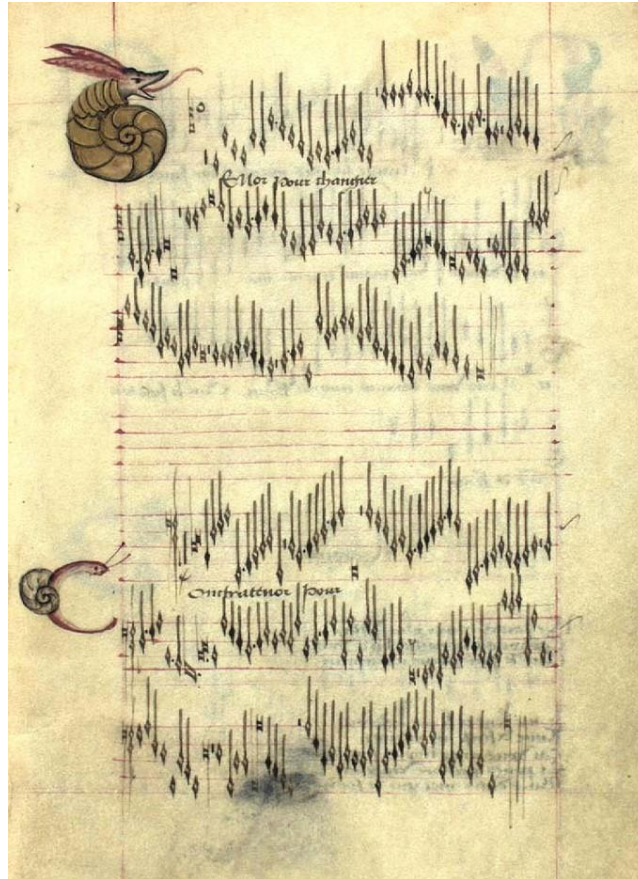 Enor pour changier
Ontratenor pour